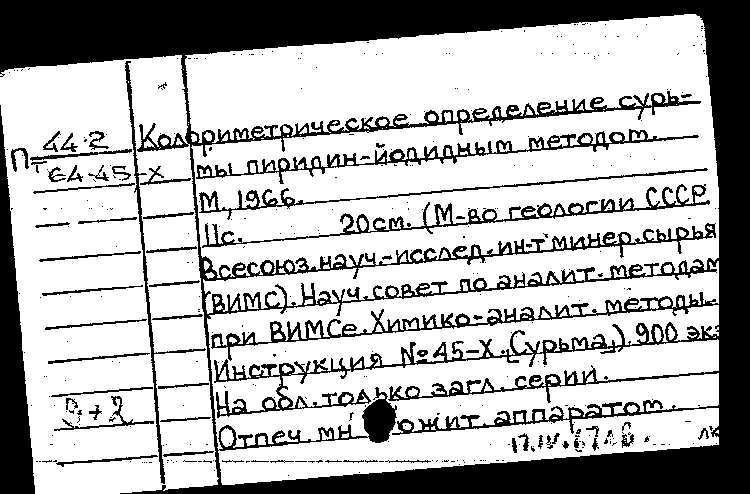 44.2
П=
64-45-X
Колориметрическое определение сурь=
мы пиридин-йодидным методом.
М., 1966.
11с. 20см. (М-во геологии СССР.
Всесоюз.науч.-исслед.ин-т минер.сырья
(ВИМС). Науч.совет по аналит.методам
при ВИМСе.Химико-аналит.методы.
Инструкция №45-X.(Сурьма).) 900 экз
На обл.только загл. серии.
9+2
Отпеч. мн ожит.аппаратом.
17.IV.67